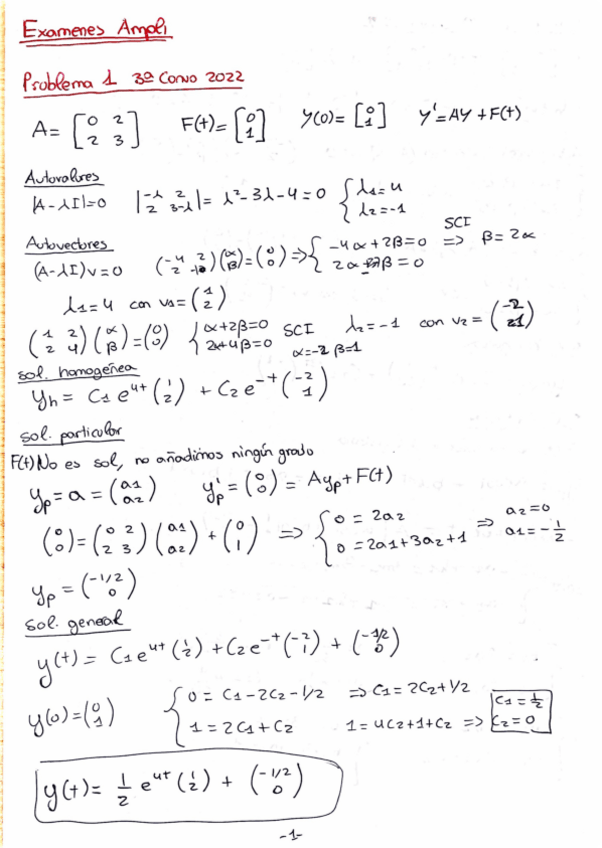 Examenes Ampli
Problema 1 3ª Convo 2022
A = [0 2; 2 3] F(t) = [0; 1] Y(0) = [0; 1] Y' = AY + F(t)
Autovalores
|A-λI|=0 |-λ 2; 2 3-λ| = λ²-3λ-4=0 { λ1=4; λ2=-1
Autovectores SCI
(A-λI)v=0 (-4 2; 2 -1)(α; β) = (0; 0) => { -4α+2β=0; 2α-β=0 => β=2α
λ1=4 con v1=(1; 2)
(1 2; 2 4)(α; β) = (0; 0) { α+2β=0; 2α+4β=0 SCI α=-2 β=1 λ2=-1 con v2=(-2; 1)
sol. homogénea
Yh = C1 e^4t (1; 2) + C2 e^-t (-2; 1)
sol. particular
F(t) No es sol, no añadimos ningún grado
yp = a = (a1; a2) yp' = (0; 0) = Ayp + F(t)
(0; 0) = (0 2; 2 3)(a1; a2) + (0; 1) => { 0 = 2a2; 0 = 2a1+3a2+1 => a2=0; a1=-1/2
yp = (-1/2; 0)
sol. general
y(t) = C1 e^4t (1; 2) + C2 e^-t (-2; 1) + (-1/2; 0)
y(0) = (0; 1) { 0 = C1-2C2-1/2 => C1=2C2+1/2; 1 = 2C1+C2 1=4C2+1+C2 => C1=1/2; C2=0
y(t) = 1/2 e^4t (1; 2) + (-1/2; 0)
-1-